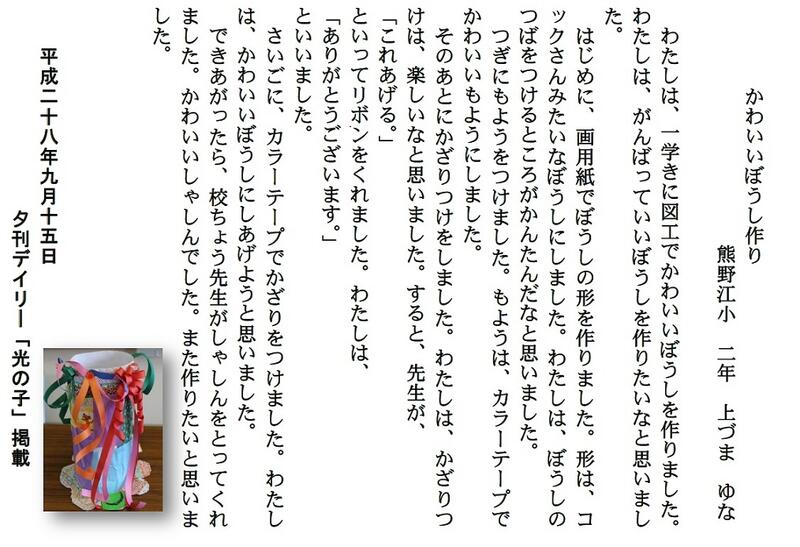 かわいいぼうし作り
熊野江小　二年　上づま　ゆな
わたしは、一学きに図工でかわいいぼうしを作りました。
わたしは、がんばっていいぼうしを作りたいなと思いまし
た。
はじめに、画用紙でぼうしの形を作りました。形は、コ
ックさんみたいなぼうしにしました。わたしは、ぼうしの
つばをつけるところがかんたんだなと思いました。
つぎにもようをつけました。もようは、カラーテープで
かわいいもようにしました。
そのあとにかざりつけをしました。わたしは、かざりつ
けは、楽しいなと思いました。すると、先生が、
「これあげる。」
といってリボンをくれました。わたしは、
「ありがとうございます。」
といいました。
さいごに、カラーテープでかざりをつけました。わたし
は、かわいいぼうしにしあげようと思いました。
できあがったら、校ちょう先生がしゃしんをとってくれ
ました。かわいいしゃしんでした。また作りたいと思いま
した。
平成二十八年九月十五日
夕刊デイリー「光の子」掲載